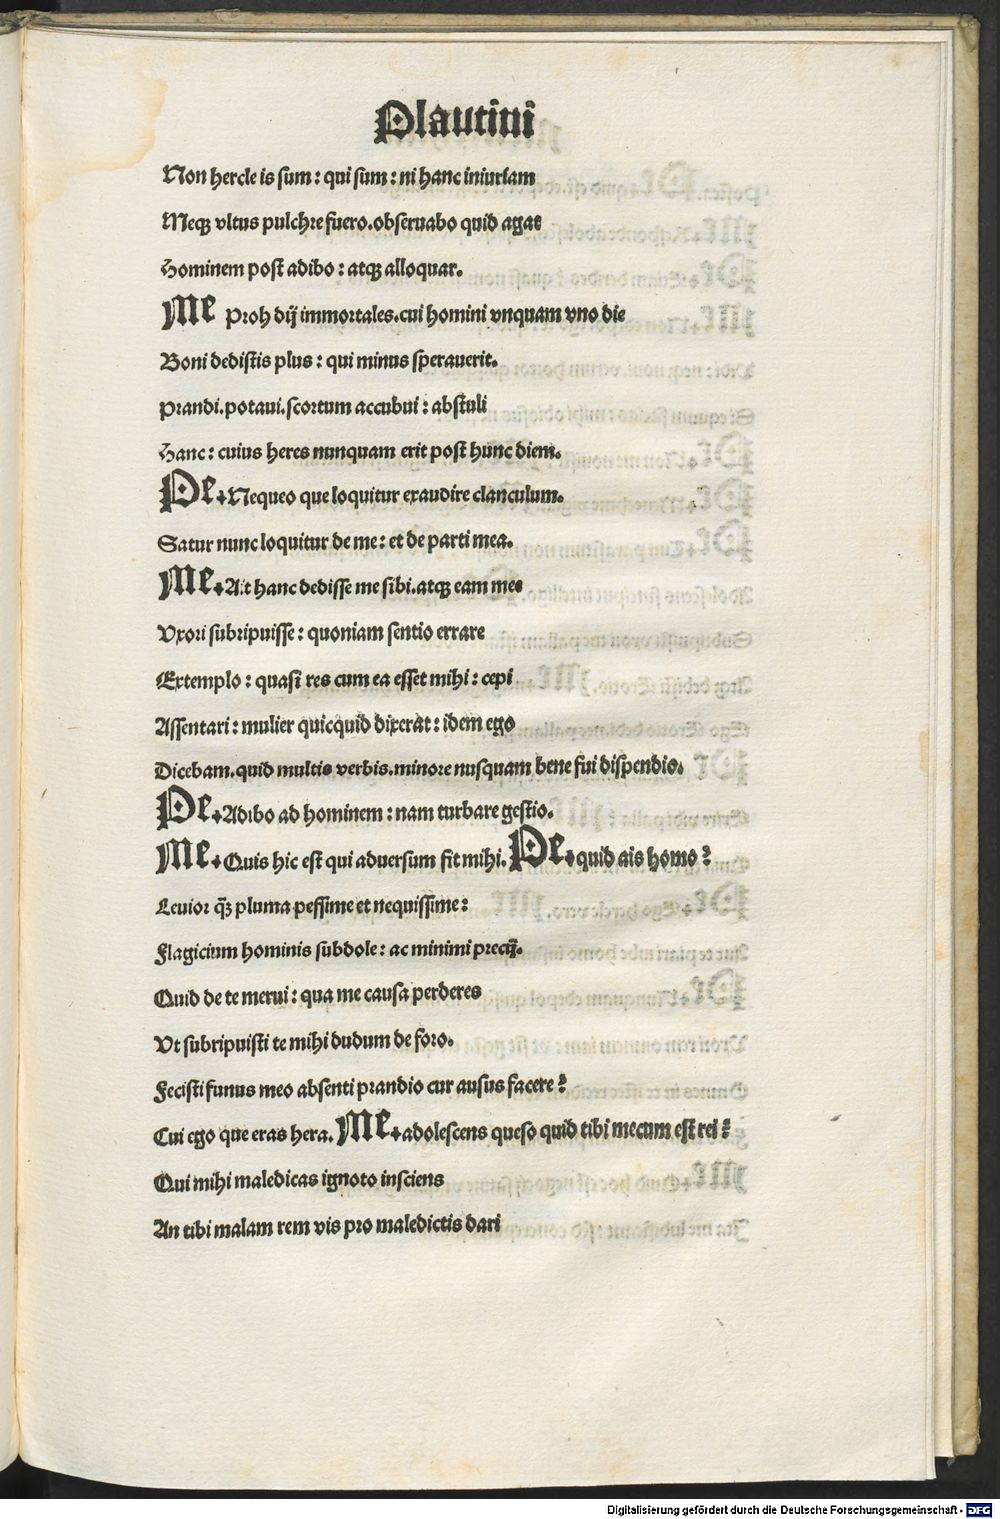 Plautini
Non hercle is sum: qui sum: ni hanc iniuriam
Meqꝫ vltus pulchre fuero. obseruabo quid agat
Hominem post adibo: atqꝫ alloquar.
Me Proh dij immortales. cui homini vnquam vno die
Boni dedistis plus: qui minus sperauerit.
Prandi. potaui. scortum accubui: abstuli
Hanc: cuius heres nunquam erit post hunc diem.
Pe. Nequeo que loquitur exaudire clanculum.
Satur nunc loquitur de me: et de parti mea.
Me. Ait hanc dedisse me sibi. atqꝫ eam mee
Vxori subripuisse: quoniam sentio errare
Extemplo: quasi res cum ea esset mihi: cepi
Assentari: mulier quicquid dixerat: idem ego
Dicebam. quid multis verbis. minore nusquam bene fui dispendio.
Pe. Adibo ad hominem: nam turbare gestio.
Me. Quis hic est qui aduersum fit mihi. Pe. quid ais homo?
Leuior qꝫ̃ pluma pessime et nequissime:
Flagicium hominis subdole: ac minimi precij.
Quid de te merui: qua me causa perderes
Vt subripuisti te mihi dudum de foro.
Fecisti funus meo absenti prandio cur ausus facere?
Cui ego que eras hera. Me. adolescens queso quid tibi mecum est rei?
Qui mihi maledicas ignoto insciens
An tibi malam rem vis pro maledictis dari
Digitalisierung gefördert durch die Deutsche Forschungsgemeinschaft - DFG